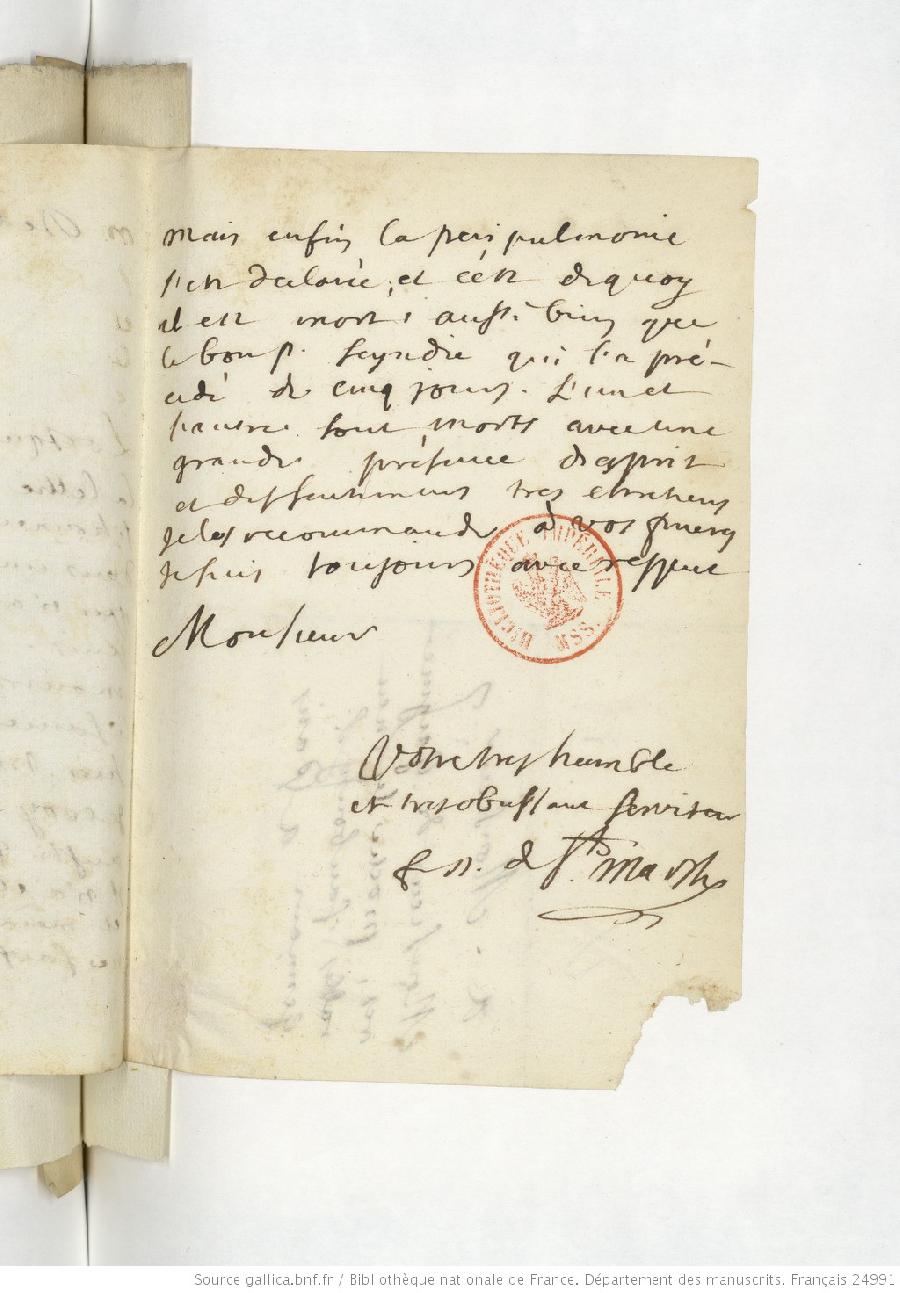 mais enfin la peripulmonie
s'est declarée, et c'est dequoy
il est mort, aussi bien que
le bon p. seyndre qui l'a pré-
cedé de cinq jours. L'un et
l'autre sont morts avec une
grande présence d'esprit
et des sentimens tres chretiens
Je les recommande à vos prieres
Je suis toujours avec respect
Monsieur
Votre tres humble
et tres obeissant serviteur
de Ste. Marthe
BIBLIOTHEQUE IMPERIALE MSS.
Source gallica.bnf.fr / Bibliothèque nationale de France. Département des manuscrits. Français 24991